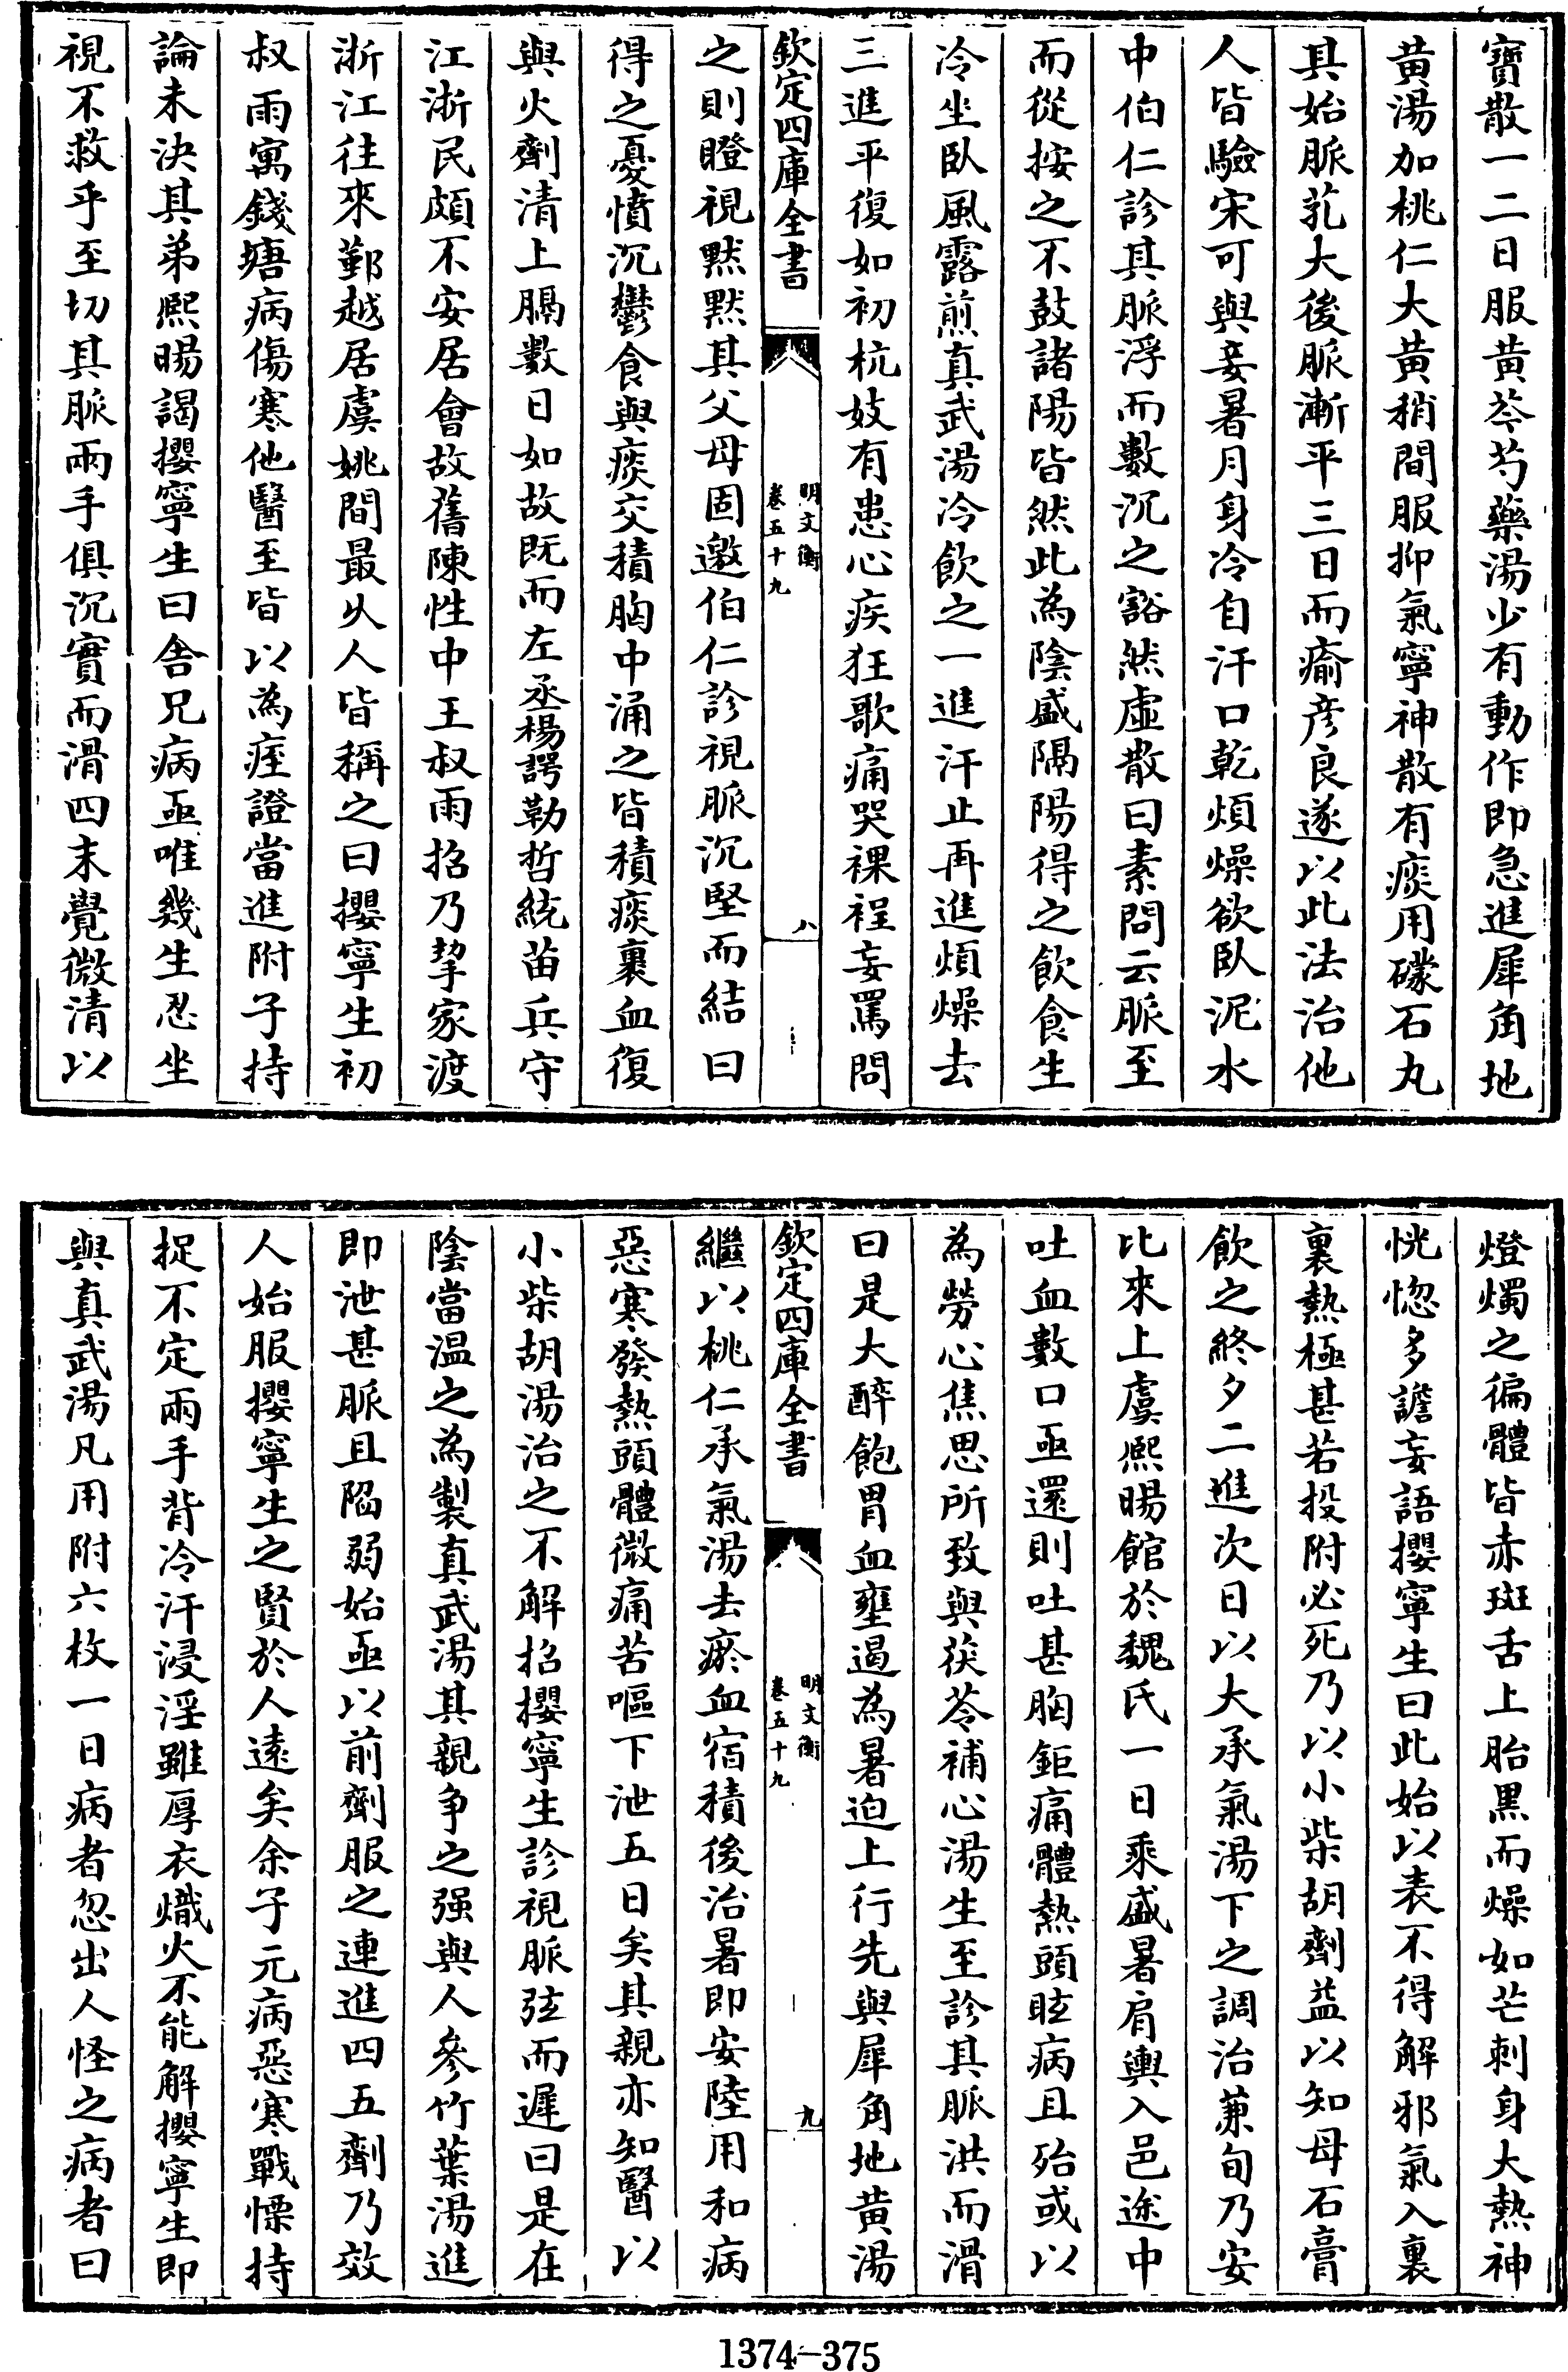 寶散一二日服黄芩芍藥湯少有動作即急進犀角地
黄湯加桃仁大黄稍間服抑氣寧神散有痰用礞石丸
其始脈芤大後脈漸平三日而瘉彦良遂以此法治他
人皆驗宋可與妾暑月身冷自汗口乾煩燥欲臥泥水
中伯仁診其脈浮而數沉之豁然虛散曰素問云脈至
而從按之不鼓諸陽皆然此為陰盛隔陽得之飲食生
冷坐臥風露煎真武湯冷飲之一進汗止再進煩燥去
三進平復如初杭妓有患心疾狂歌痛哭裸裎妄罵問
欽定四庫全書
明文衡
卷五十九
八
之則瞪視默默其父母固邀伯仁診視脈沉堅而結曰
得之憂憤沉鬱食與痰交積胸中涌之皆積痰裏血復
與火劑清上膈數日如故既而左丞楊諤勒哲統苗兵守
江浙民頗不安居會故舊陳性中王叔雨招乃挈家渡
浙江往來鄞越居虞姚間最乆人皆稱之曰攖寧生初
叔雨寓錢塘病傷寒他醫至皆以為痓證當進附子持
論未決其弟熙暘謁攖寧生曰舎兄病亟唯幾生忍坐
視不救乎至切其脈兩手俱沉實而滑四末覺微清以
燈燭之徧體皆赤斑舌上胎黒而燥如芒刺身大熱神
恍惚多譫妄語攖寧生曰此始以表不得解邪氣入裏
裏熱極甚若投附必死乃以小柴胡劑益以知母石膏
飲之終夕二進次日以大承氣湯下之調治兼旬乃安
比來上虞熙暘館於魏氏一日乘盛暑肩輿入邑途中
吐血數口亟還則吐甚胸鉅痛體熱頭眩病且殆或以
為勞心焦思所致與茯苓補心湯生至診其脈洪而滑
曰是大醉飽胃血壅遏為暑迫上行先與犀角地黄湯
欽定四庫全書
明文衡
卷五十九
九
繼以桃仁承氣湯去瘀血宿積後治暑即安陸用和病
惡寒發熱頭體微痛苦嘔下泄五日矣其親亦知醫以
小柴胡湯治之不解招攖寧生診視脈弦而遲曰是在
陰當温之為製真武湯其親争之强與人參竹葉湯進
即泄甚脈且陷弱始亟以前劑服之連進四五劑乃效
人始服攖寧生之賢於人遠矣余子元病惡寒戰慄持
捉不定兩手背冷汗浸淫雖厚衣熾火不能解攖寧生即
與真武湯凡用附六枚一日病者忽出人怪之病者曰
1374—375